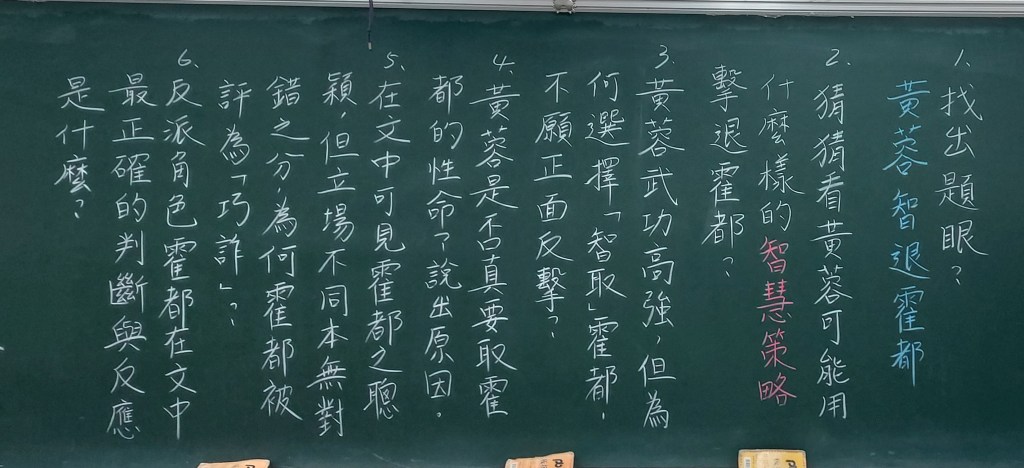 1、找出題眼？
黃蓉智退霍都
2、猜猜看黃蓉可能用
什麼樣的智慧策略
擊退霍都？
3、黃蓉武功高強，但為
何選擇「智取」霍都，
不願正面反擊？
4、黃蓉是否真要取霍
都的性命？說出原因。
5、在文中可見霍都之聰
穎，但立場不同本無對
錯之分，為何霍都被
評為「巧詐」？
6、反派角色霍都在文中
最正確的判斷與反應
是什麼？